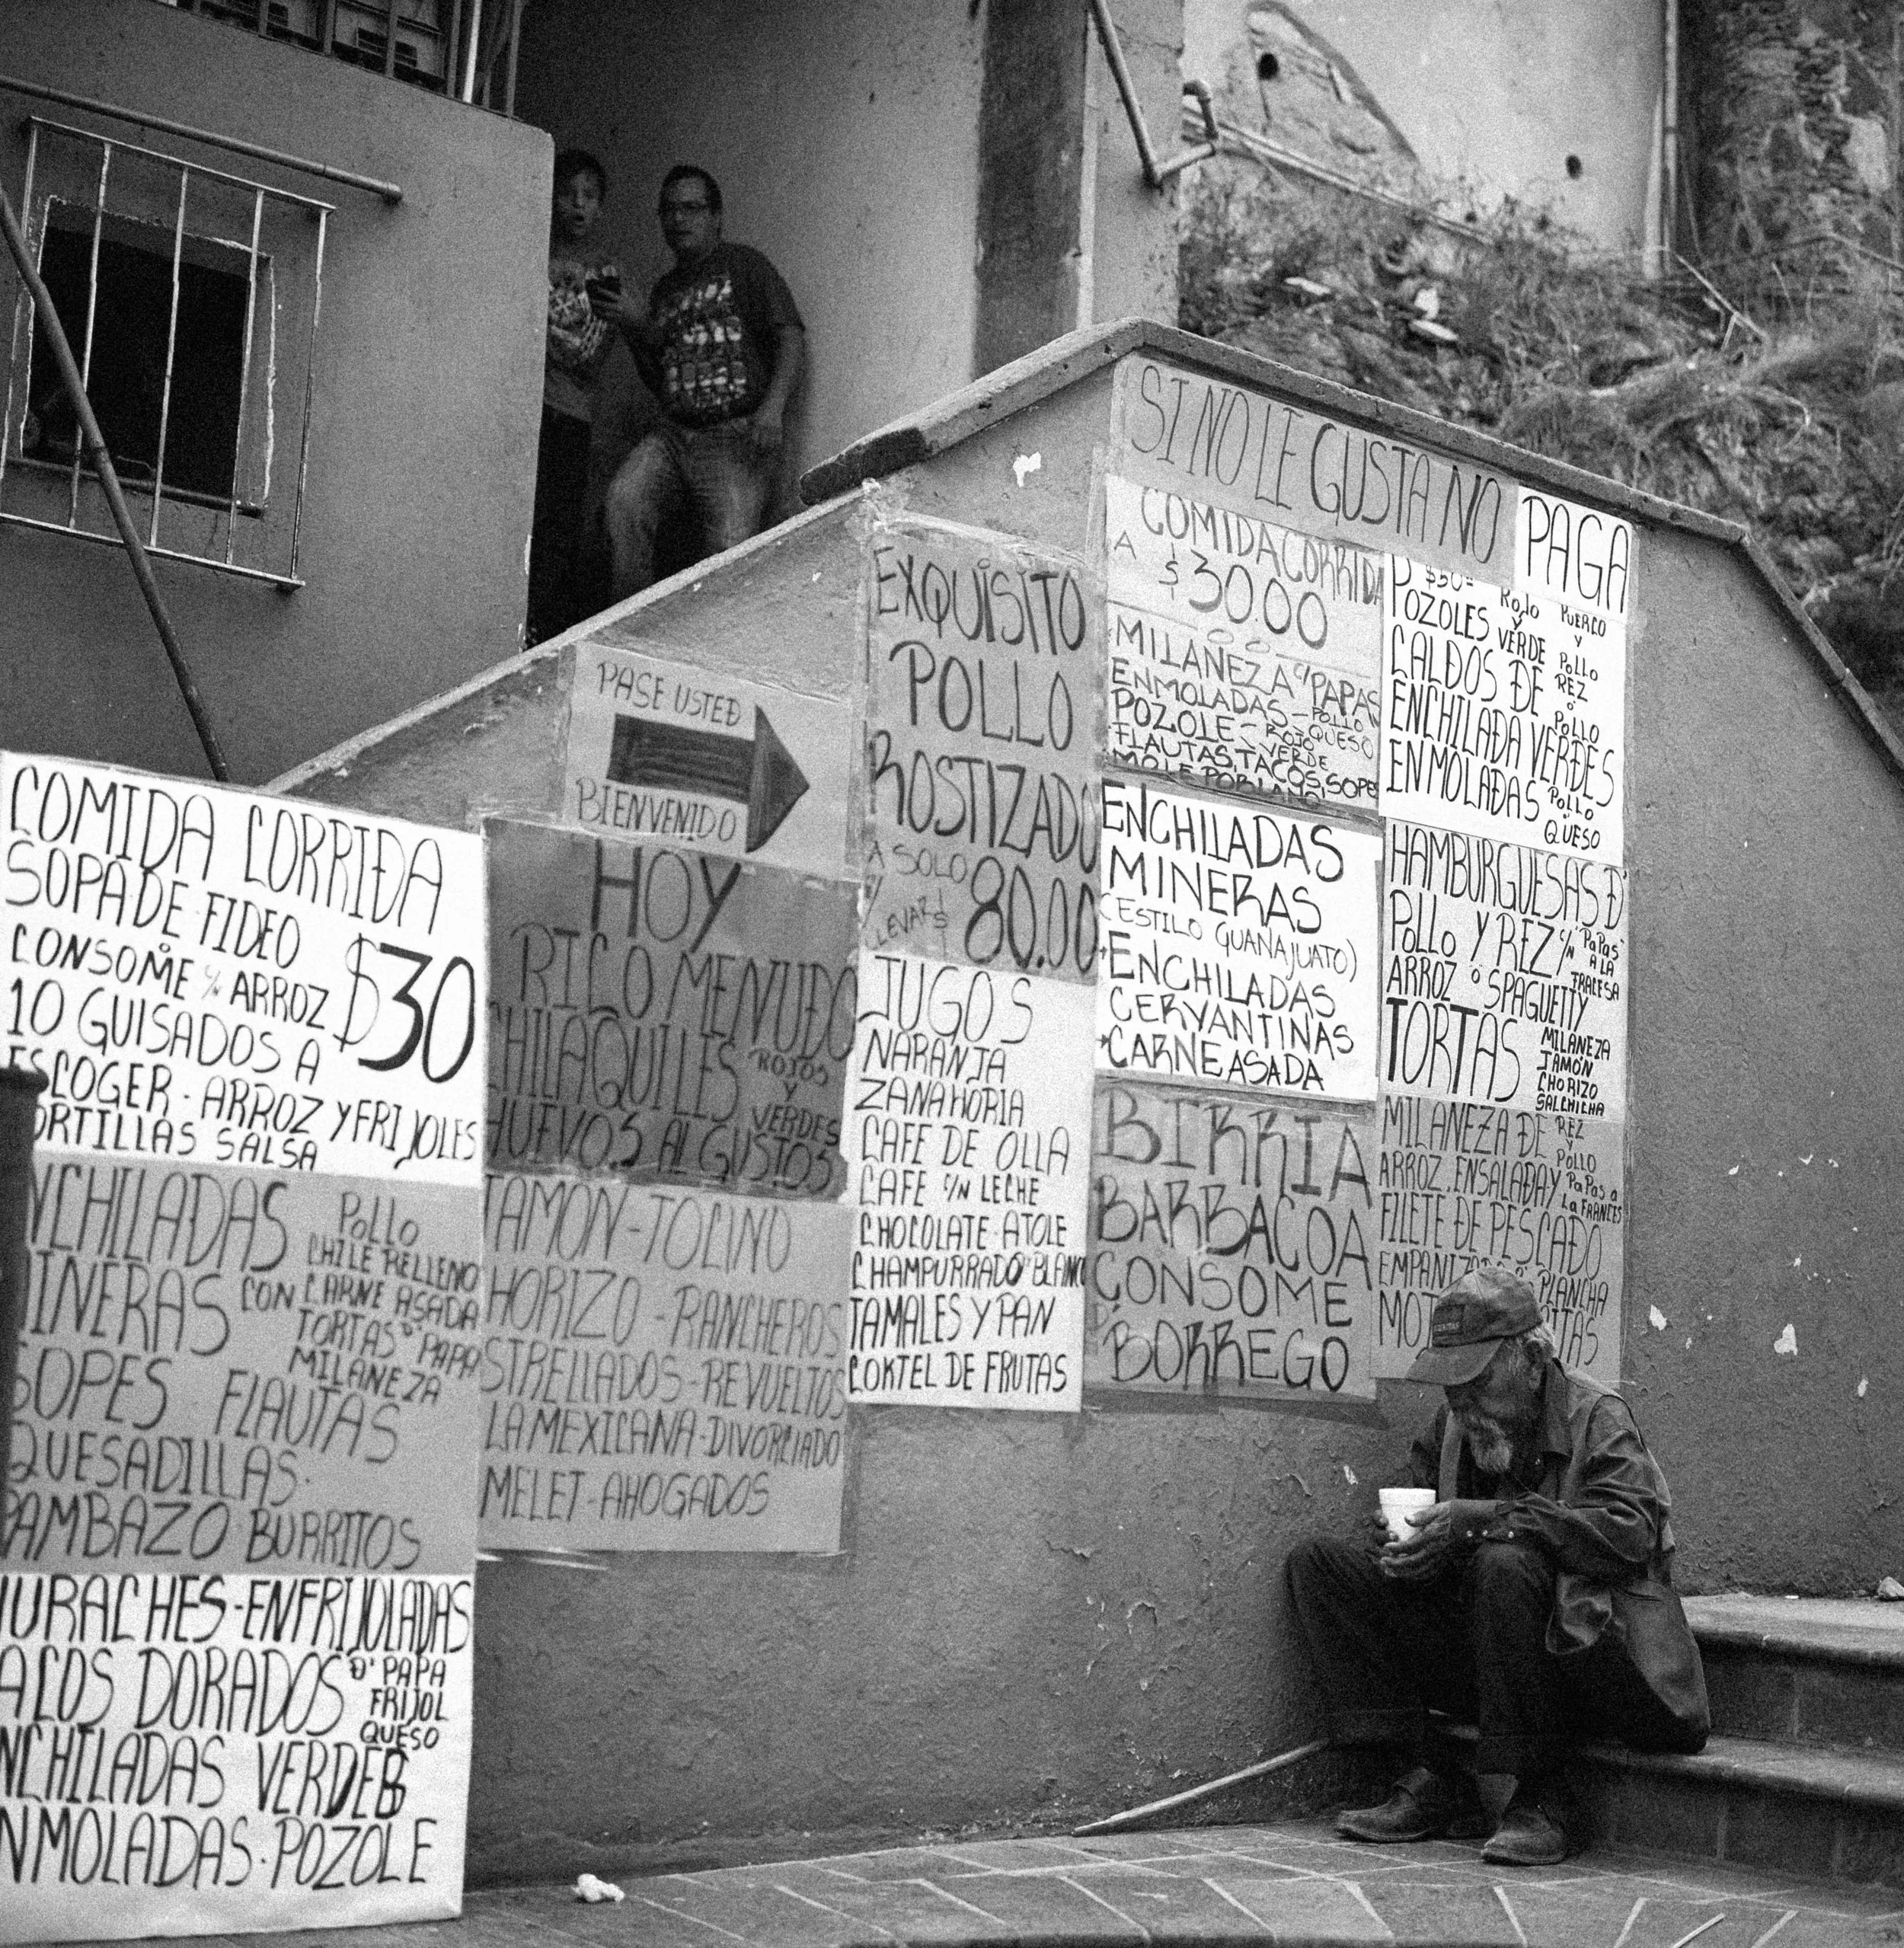 COMIDA CORRIDA
SOPA DE FIDEO
CONSOME C/N ARROZ $30
10 GUISADOS A
ESCOGER - ARROZ Y FRIJOLES
ORTILLAS SALSA
NCHILADAS
INERAS CON
Pollo
CHILE RELLENO
CARNE ASADA
TORTAS D' PAPA
MILANEZA
SOPES FLAUTAS
QUESADILLAS.
PAMBAZO BURRITOS
URACHES-ENFRIJOLADAS
ACOS DORADOS D' PAPA
FRIJOL
QUESO
NCHILADAS VERDES
NMOLADAS.POZOLE
PASE USTED
BIENVENIDO
HOY
RICO MENUDO
CHILAQUILES ROJOS
Y
VERDES
HUEVOS AL GUSTOS
JAMON-TOCINO
HORIZO-RANCHEROS
STRELLADOS-REVUELTOS
LA MEXICANA-DIVORCIADO
MELET-AHOGADOS
EXQUISITO
POLLO
ROSTIZADO
A SOLO
P/
LLEVAR $ 80.00
JUGOS
NARANJA
ZANAHORIA
CAFE DE OLLA
CAFE C/N LECHE
CHOCOLATE-ATOLE
CHAMPURRADO BLANCO
TAMALES Y PAN
COKTEL DE FRUTAS
SI NO LE GUSTA NO PAGA
COMIDA CORRIDA
A $30.00
MILANEZA C/PAPAS
ENMOLADAS-POLLO
QUESO
POZOLE-ROJO
VERDE
FLAUTAS, TACOS, SOPE
MOLE POBLANO
ENCHILADAS
MINERAS
(ESTILO GUANAJUATO)
ENCHILADAS
CERVANTINAS
CARNE ASADA
BIRRIA
BARBACOA
CONSOME
D' BORREGO
$50=
POZOLES ROJO
Y
VERDE
PUERCO
Y
POLLO
CALDOS DE REZ
O
POLLO
ENCHILADA VERDES
ENMOLADAS POLLO
O
QUESO
HAMBURGUESAS D'
POLLO Y REZ C/N PaPas
A LA
FRACESA
ARROZ O SPAGUETTY
TORTAS MILANEZA
JAMON
CHORIZO
SALCHICHA
MILANEZA DE REZ
Y
POLLO
ARROZ. ENSALADA Y PaPas a
La FRANCES
FILETE DE PESCADO
PLANCHA